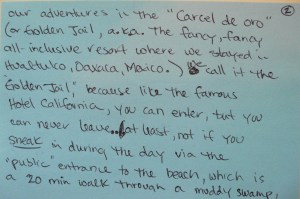 ②
our adventures is the "Carcel de oro"
(or Golden Jail, a.k.a. The fancy, fancy
all-inclusive resort where we stayed in
Huatulco, Oaxaca, Mexico.) We call it the
"Golden Jail," because like the famous
Hotel California, you can enter, but you
can never leave...at least, not if you
sneak in during the day via the
"public" entrance to the beach, which is
a 20 min walk through a muddy swamp,